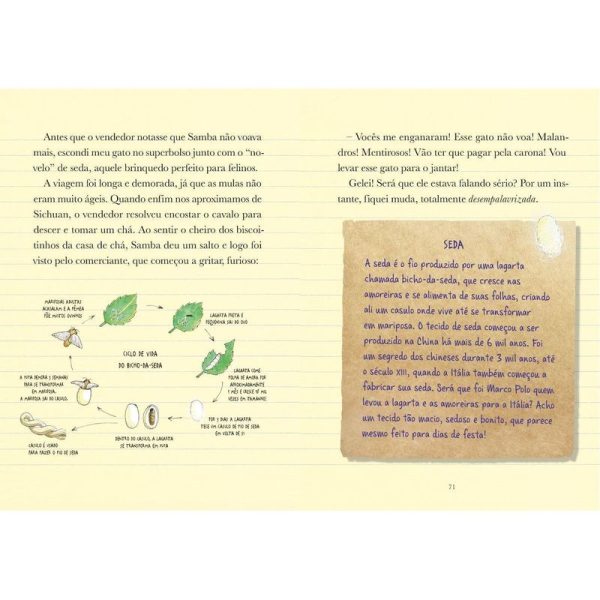 Antes que o vendedor notasse que Samba não voava
mais, escondi meu gato no superbolso junto com o “no-
velo” de seda, aquele brinquedo perfeito para felinos.
A viagem foi longa e demorada, já que as mulas não
eram muito ágeis. Quando enfim nos aproximamos de
Sichuan, o vendedor resolveu encostar o cavalo para
descer e tomar um chá. Ao sentir o cheiro dos biscoi-
tinhos da casa de chá, Samba deu um salto e logo foi
visto pelo comerciante, que começou a gritar, furioso:
MARIPOSAS ADULTAS
ACASALAM E A FÊMEA
PÕE MUITOS OVINHOS
LAGARTA PRETA E
PEQUENINA SAI DO OVO
CICLO DE VIDA
DO BICHO-DA-SEDA
LAGARTA COME
FOLHA DE AMORA POR
APROXIMADAMENTE
1 MÊS E CRESCE 10 MIL
VEZES EM TAMANHO!
A PUPA DEMORA 3 SEMANAS
PARA SE TRANSFORMAR
EM MARIPOSA.
A MARIPOSA SAI DO CASULO.
POR 3 DIAS A LAGARTA
TECE UM CASULO DE FIO DE SEDA
EM VOLTA DE SI
DENTRO DO CASULO, A LAGARTA
SE TRANSFORMA EM PUPA
CASULO É USADO
PARA FAZER O FIO DE SEDA
– Vocês me enganaram! Esse gato não voa! Malan-
dros! Mentirosos! Vão ter que pagar pela carona! Vou
levar esse gato para o jantar!
Gelei! Será que ele estava falando sério? Por um ins-
tante, fiquei muda, totalmente desempalavrizada.
SEDA
A seda é o fio produzido por uma lagarta
chamada bicho-da-seda, que cresce nas
amoreiras e se alimenta de suas folhas, criando
ali um casulo onde vive até se transformar
em mariposa. O tecido de seda começou a ser
produzido na China há mais de 6 mil anos. Foi
um segredo dos chineses durante 3 mil anos, até
o século XIII, quando a Itália também começou a
fabricar sua seda. Será que foi Marco Polo quem
levou a lagarta e as amoreiras para a Itália? Acho
um tecido tão macio, sedoso e bonito, que parece
mesmo feito para dias de festa!
21